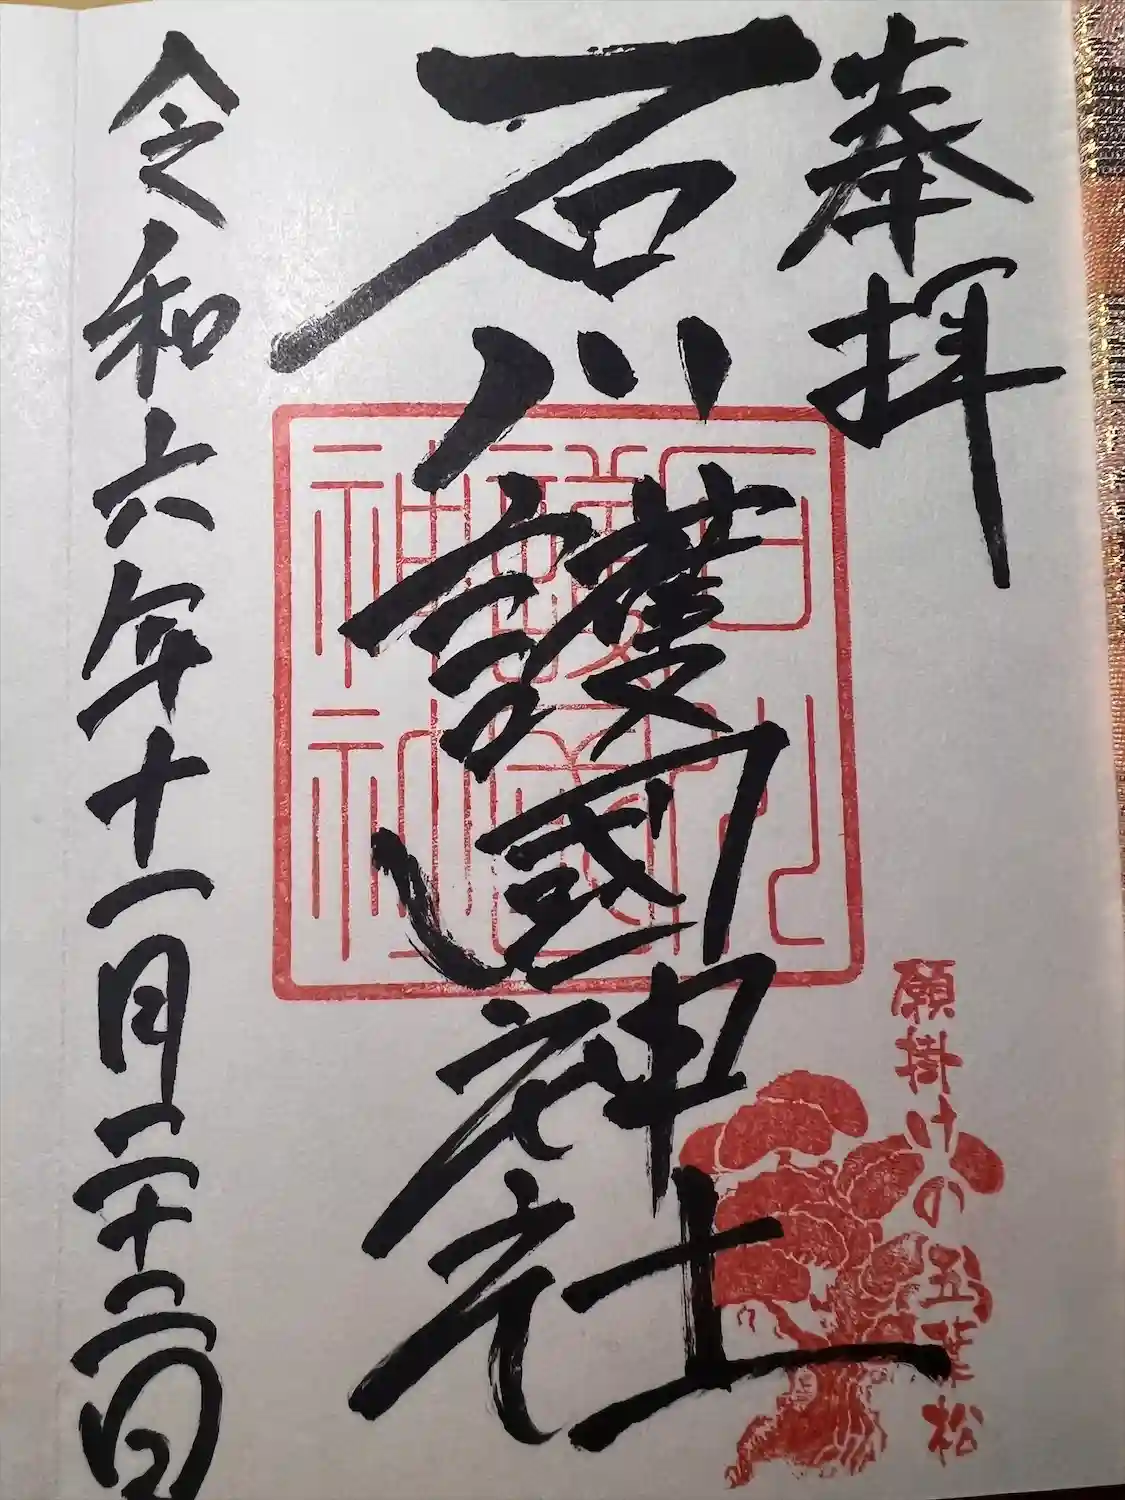 奉拝
石川護國神社
石川護國神社
願掛けの五葉松
令和六年十一月二十二日